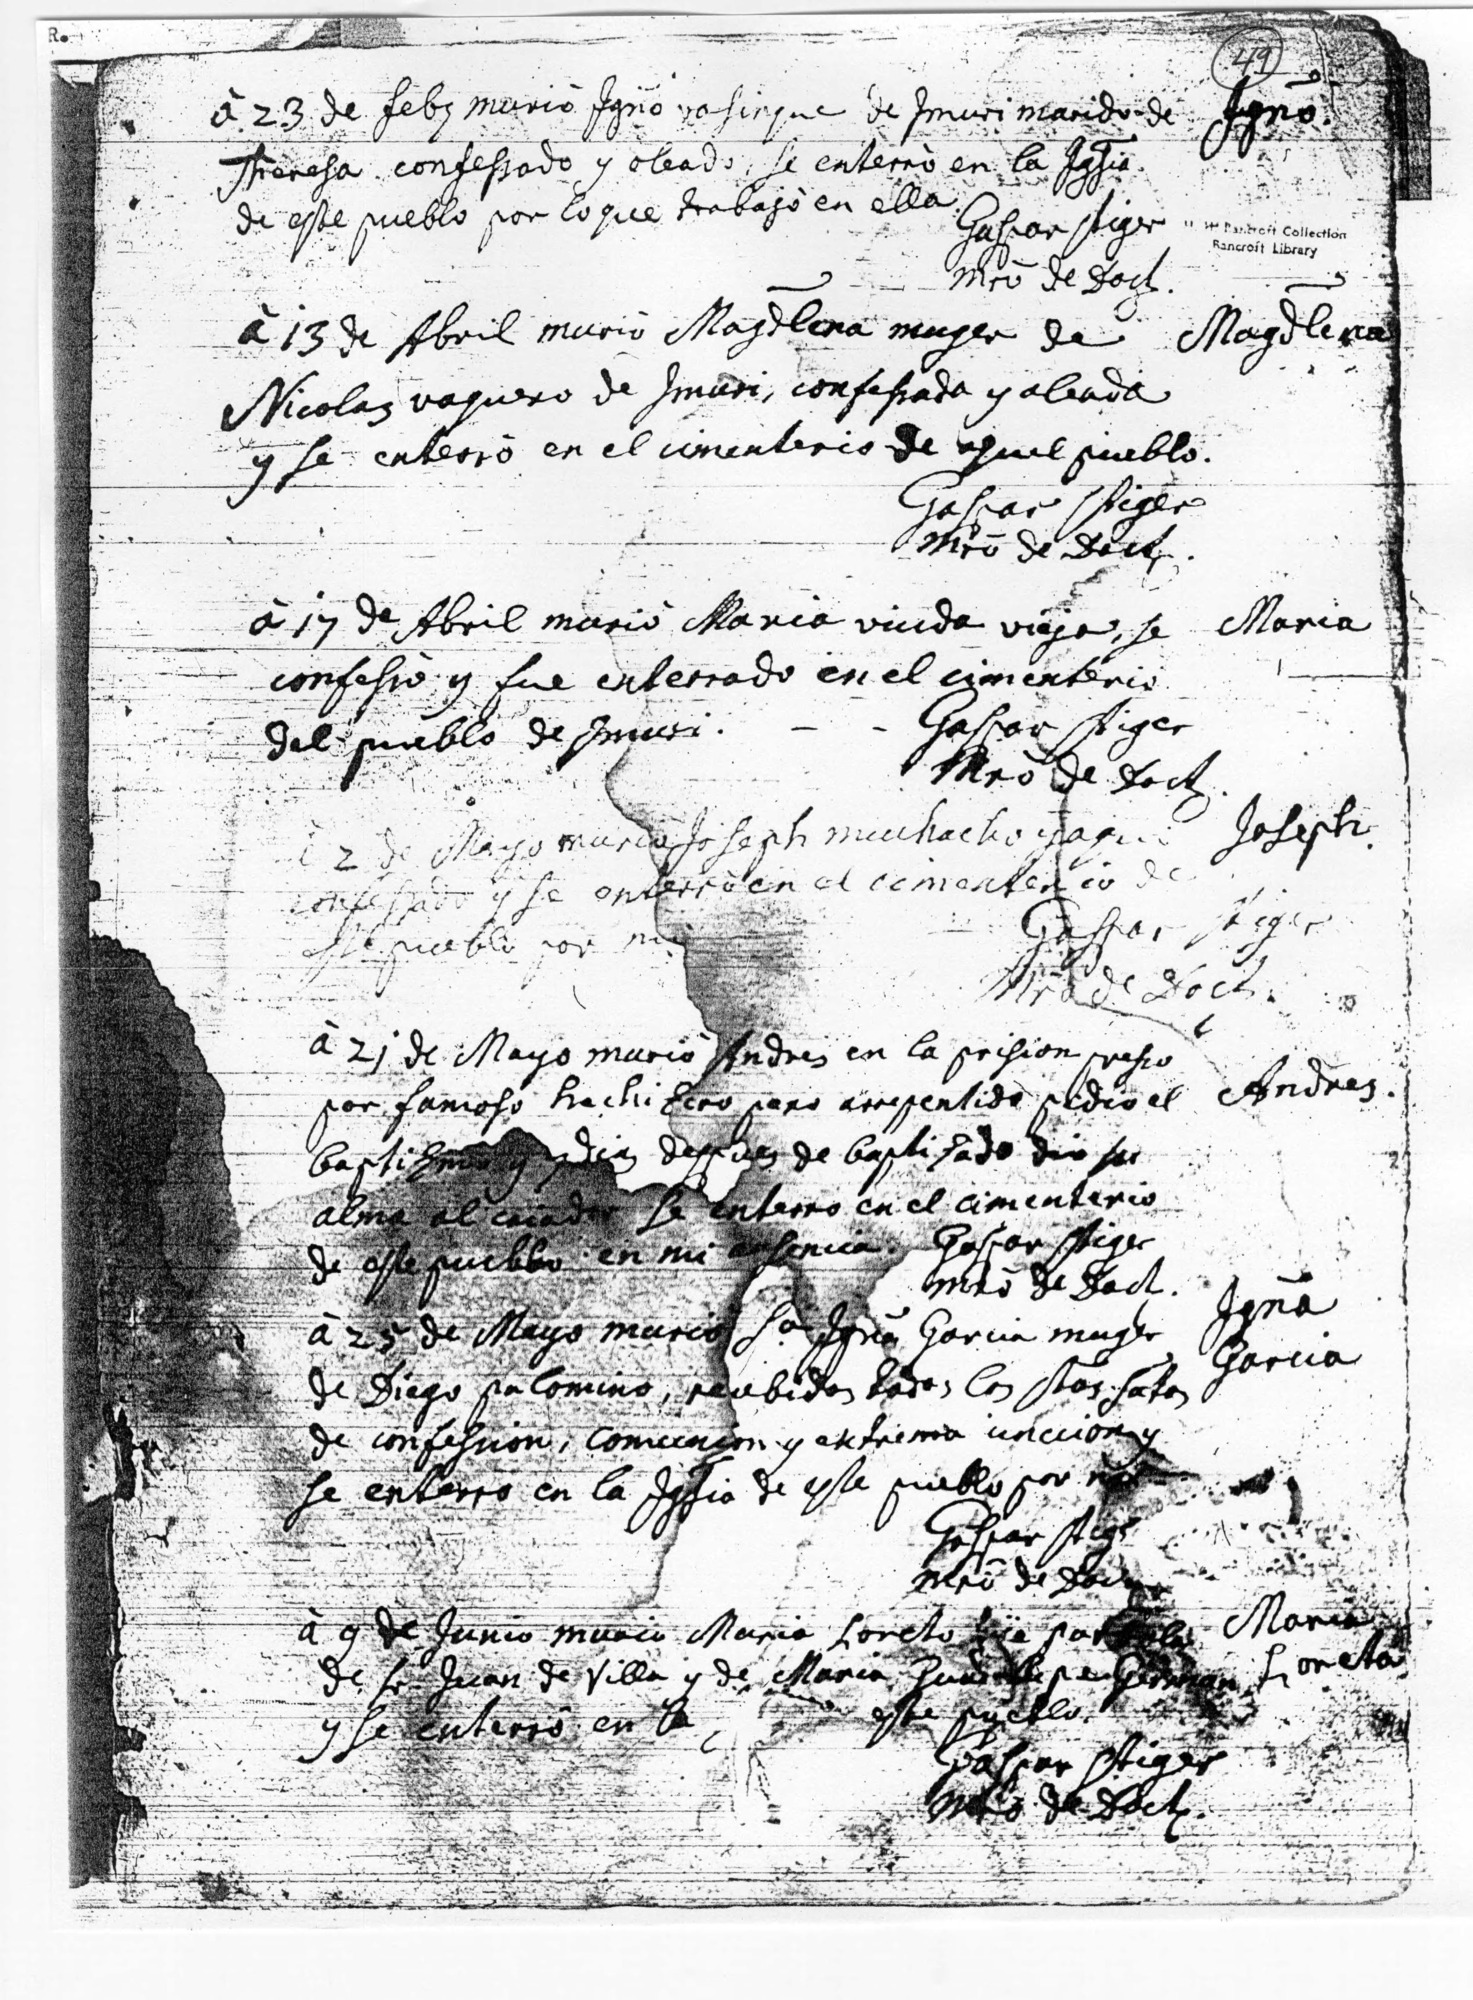 R.
49
à 23 de feb murió Ygn̄o de Ymuri marido de Ygn̄o.
Theresa confessado y oleado, se enterrò en la Yglia
de este pueblo por lo que trabajò en ella
Gaspar Stiger
Mrō de Doct.
Bancroft Collection
Bancroft Library
à 13 de Abril muriò Magdlena muger de Magdlena
Nicolas vaquero de Ymuri, confessada y oleada
y se enterrò en el cimenterio de aquel pueblo.
Gaspar Stiger
Mrō de Doct.
à 17 de Abril muriò Maria viuda vieja, se Maria
confessò y fue enterrado en el cimenterio
del pueblo de Ymuri.
Gaspar Stiger
Mrō de Doct.
à 2 de Mayo muriò Joseph muchacho yaqui Joseph.
confessado y se enterrò en el cimenterio de
este pueblo por mi
Gaspar Stiger
Mrō de Doct.
à 21 de Mayo muriò Andres en la prision preso
por famoso hechizero pero arrepentido pidio el Andres.
baptizmo y dias despues de baptizado dio su
alma al criador se enterro en el cimenterio
de este pueblo en mi ausencia. Gaspar Stiger
Mrō de Doct.
à 25 de Mayo muriò Sa Ygn̄a Garcia muger Ygn̄a
de Diego palomino, recibidos todos los Stos Garcia
de confession, comunion y extrema uncion y
se enterro en la Yglia de este pueblo por mi
Gaspar Stiger
Mrō de Doct.
à 9 de Junio murio Maria Loreto Maria
de Sr Juan de Villa y de Maria Guadalupe German Loreta
y se enterrò en la este pueblo.
Gaspar Stiger
Mrō de Doct.